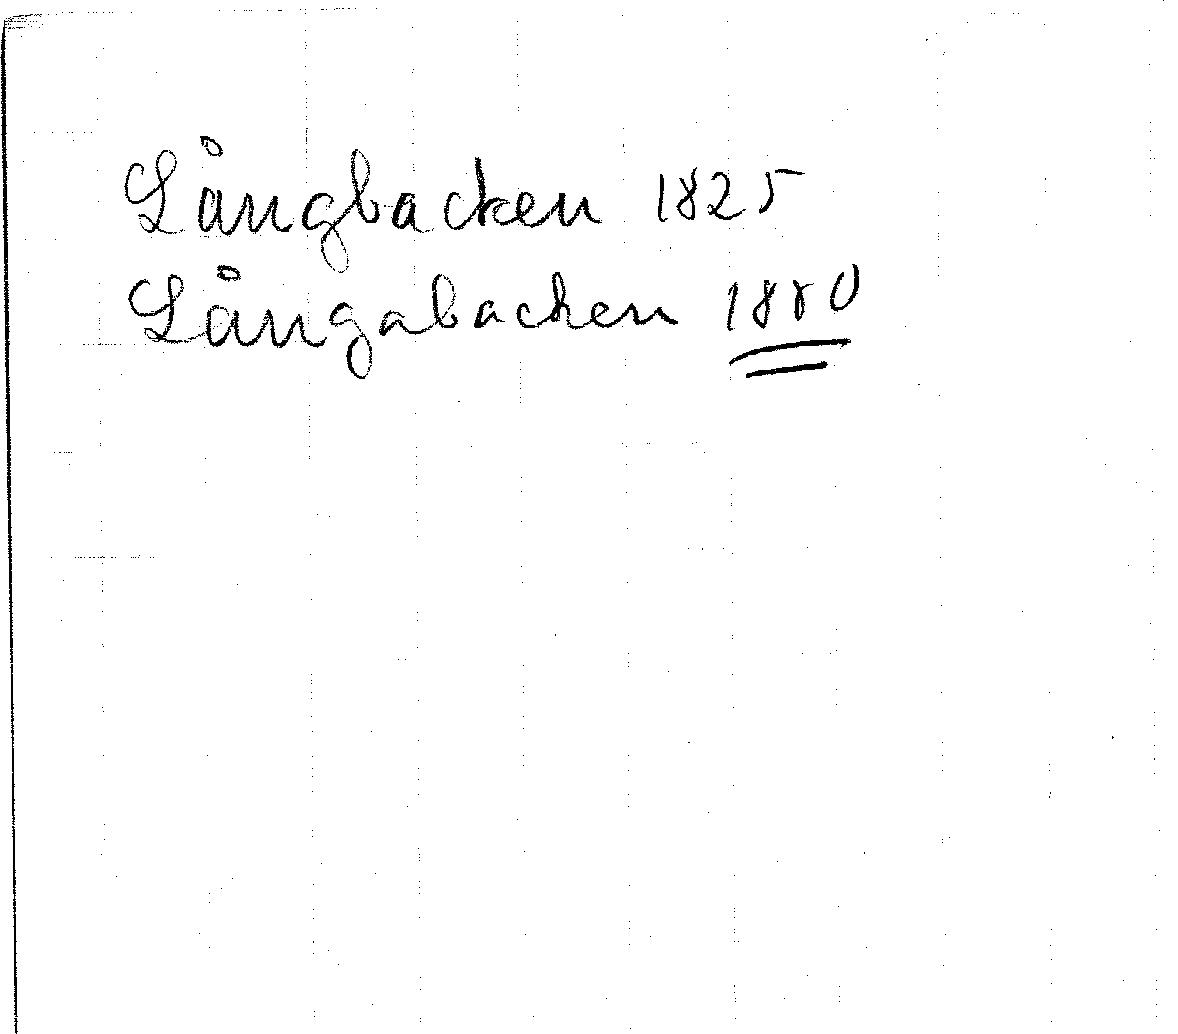 Långbacken 1825
Långabacken 1880